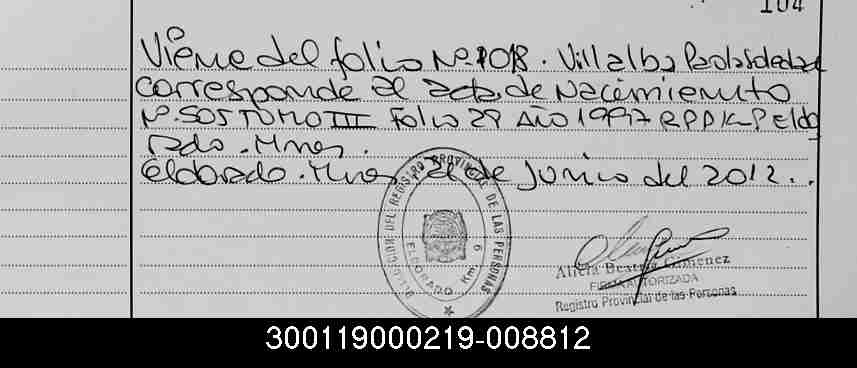 104
Viene del folio Nº 1018. Villalba Paola Soledad
corresponde al acta de Nacimiento
Nº 505 TOMO III Folio 29 Año 1997 R.P.P. Km 9 Eldo
rado. Mnes.
Eldorado. Mnes, 21 de Junio del 2012..
DEL REGISTRO PROVINCIAL DE LAS PERSONAS
ELDORADO Km 9
Alicia Beatriz Gimenez
FIRMA AUTORIZADA
Registro Provincial de las Personas
300119000219-008812